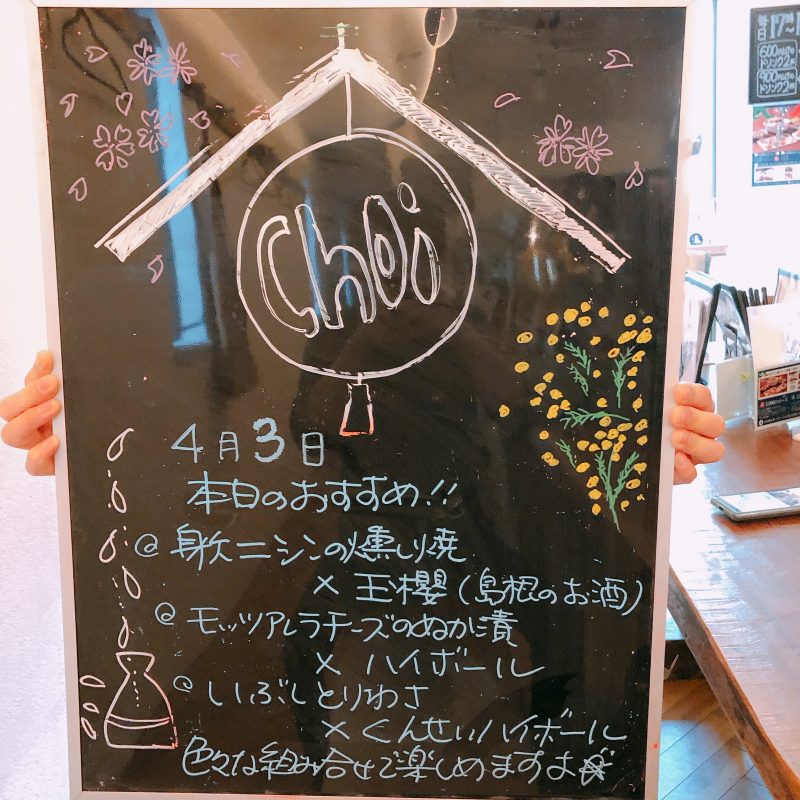 Choi
4月3日
本日のおすすめ!!
@ 身欠ニシンの燻し焼
× 玉櫻(島根のお酒)
@ モッツアレラチーズのぬか漬
× ハイボール
@ いぶしとりわさ
× くんせいハイボール
色々な組み合せで楽しめますよ☆
毎日17時
600
ドリンク2杯
900
ドリンク2杯